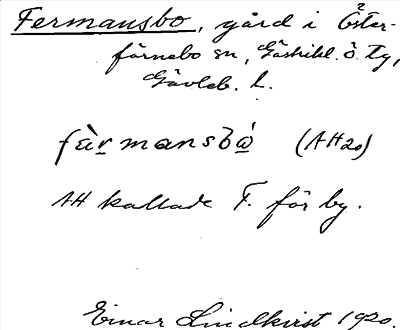 Fermansbo, gård i Öster-
färnebo sn, Gästrikl. ö. tg,
Gävleb. l.
fàrmansbó (AH20)
AH kallade F. för by.
Einar Lindkvist 1920.